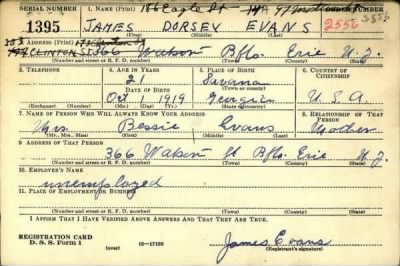 SERIAL NUMBER 1. NAME (Print) 186 Eagle St ORDER NUMBER
1395 JAMES DORSEY EVANS 2556 2556
(First) (Middle) (Last)
2. ADDRESS (Print)
CLINTON ST 366 Watson Bflo. Erie N.Y.
(Number and street or R. F. D. number) (Town) (County) (State)
3. TELEPHONE 4. AGE IN YEARS 5. PLACE OF BIRTH 6. COUNTRY OF CITIZENSHIP
21 Savana
DATE OF BIRTH (Town or county)
Oct 1919 Georgia U.S.A.
(Exchange) (Number) (Mo.) (Day) (Yr.) (State or country)
7. NAME OF PERSON WHO WILL ALWAYS KNOW YOUR ADDRESS 8. RELATIONSHIP OF THAT PERSON
Mrs. Bessie Evans Mother
(Mr., Mrs., Miss) (First) (Middle) (Last)
9. ADDRESS OF THAT PERSON
366 Watson St Bflo. Erie N.Y.
(Number and street or R. F. D. number) (Town) (County) (State)
10. EMPLOYER'S NAME
unemployed
11. PLACE OF EMPLOYMENT OR BUSINESS
(Number and street or R. F. D. number) (Town) (County) (State)
I AFFIRM THAT I HAVE VERIFIED ABOVE ANSWERS AND THAT THEY ARE TRUE.
REGISTRATION CARD
D. S. S. Form 1 (over) 16-17105 James Evans
(Registrant's signature)